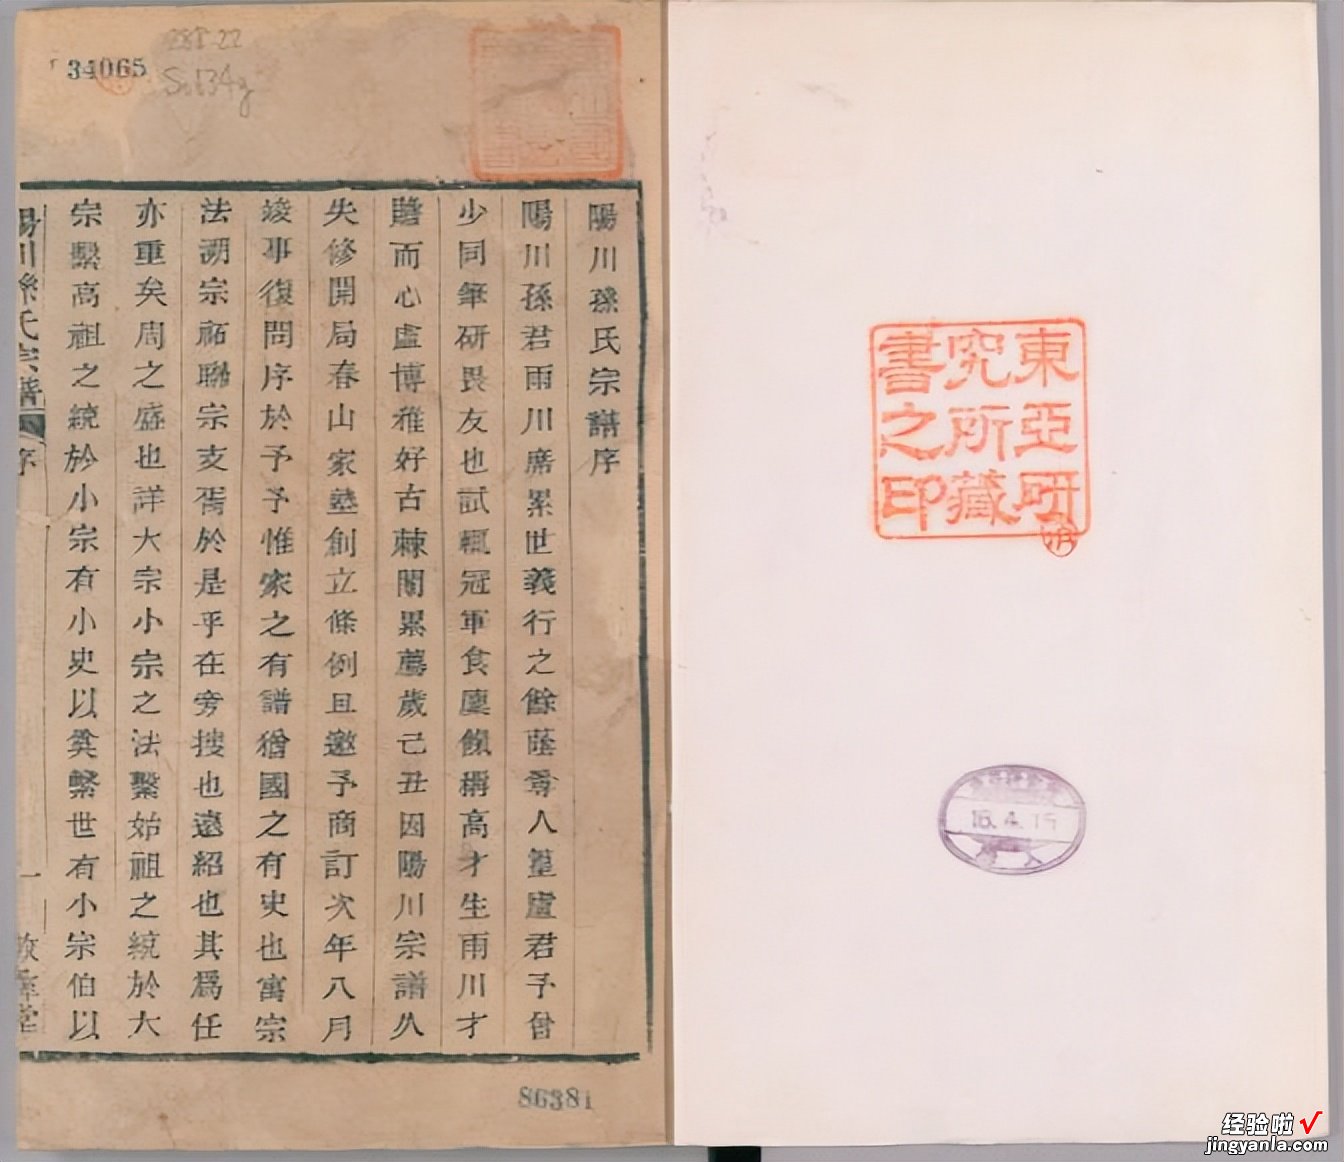 34065
東亞研
究所藏
書之印
16.4.15
陽川孫氏宗譜序
陽川孫君雨川席累世義行之餘蔭尊人篁廬君予曾
少同筆研畏友也試輒冠軍食廩餼稱高才生雨川才
贍而心虛博雅好古棘闈累薦歲己丑因陽川宗譜久
失修開局春山家塾創立條例且邀予商訂次年八月
竣事復問序於予予惟家之有譜猶國之有史也寓宗
法溯宗祏聯宗支胥於是乎在旁搜也遠紹也其爲任
亦重矣周之盛也詳大宗小宗之法繫始祖之統於大
宗繫高祖之統於小宗有小史以奠繫世有小宗伯以
陽川孫氏宗譜 序 一
86381
经验啦√
jingyanla.com